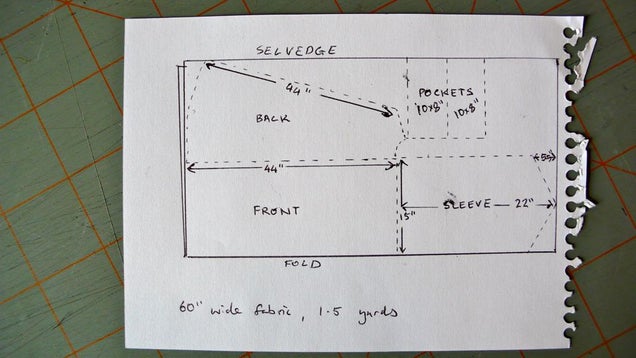 SELVEDGE
44"
POCKETS
10x8"
10x8"
BACK
44"
5.5"
SLEEVE 22"
FRONT
15"
FOLD
60" wide fabric, 1.5 yards